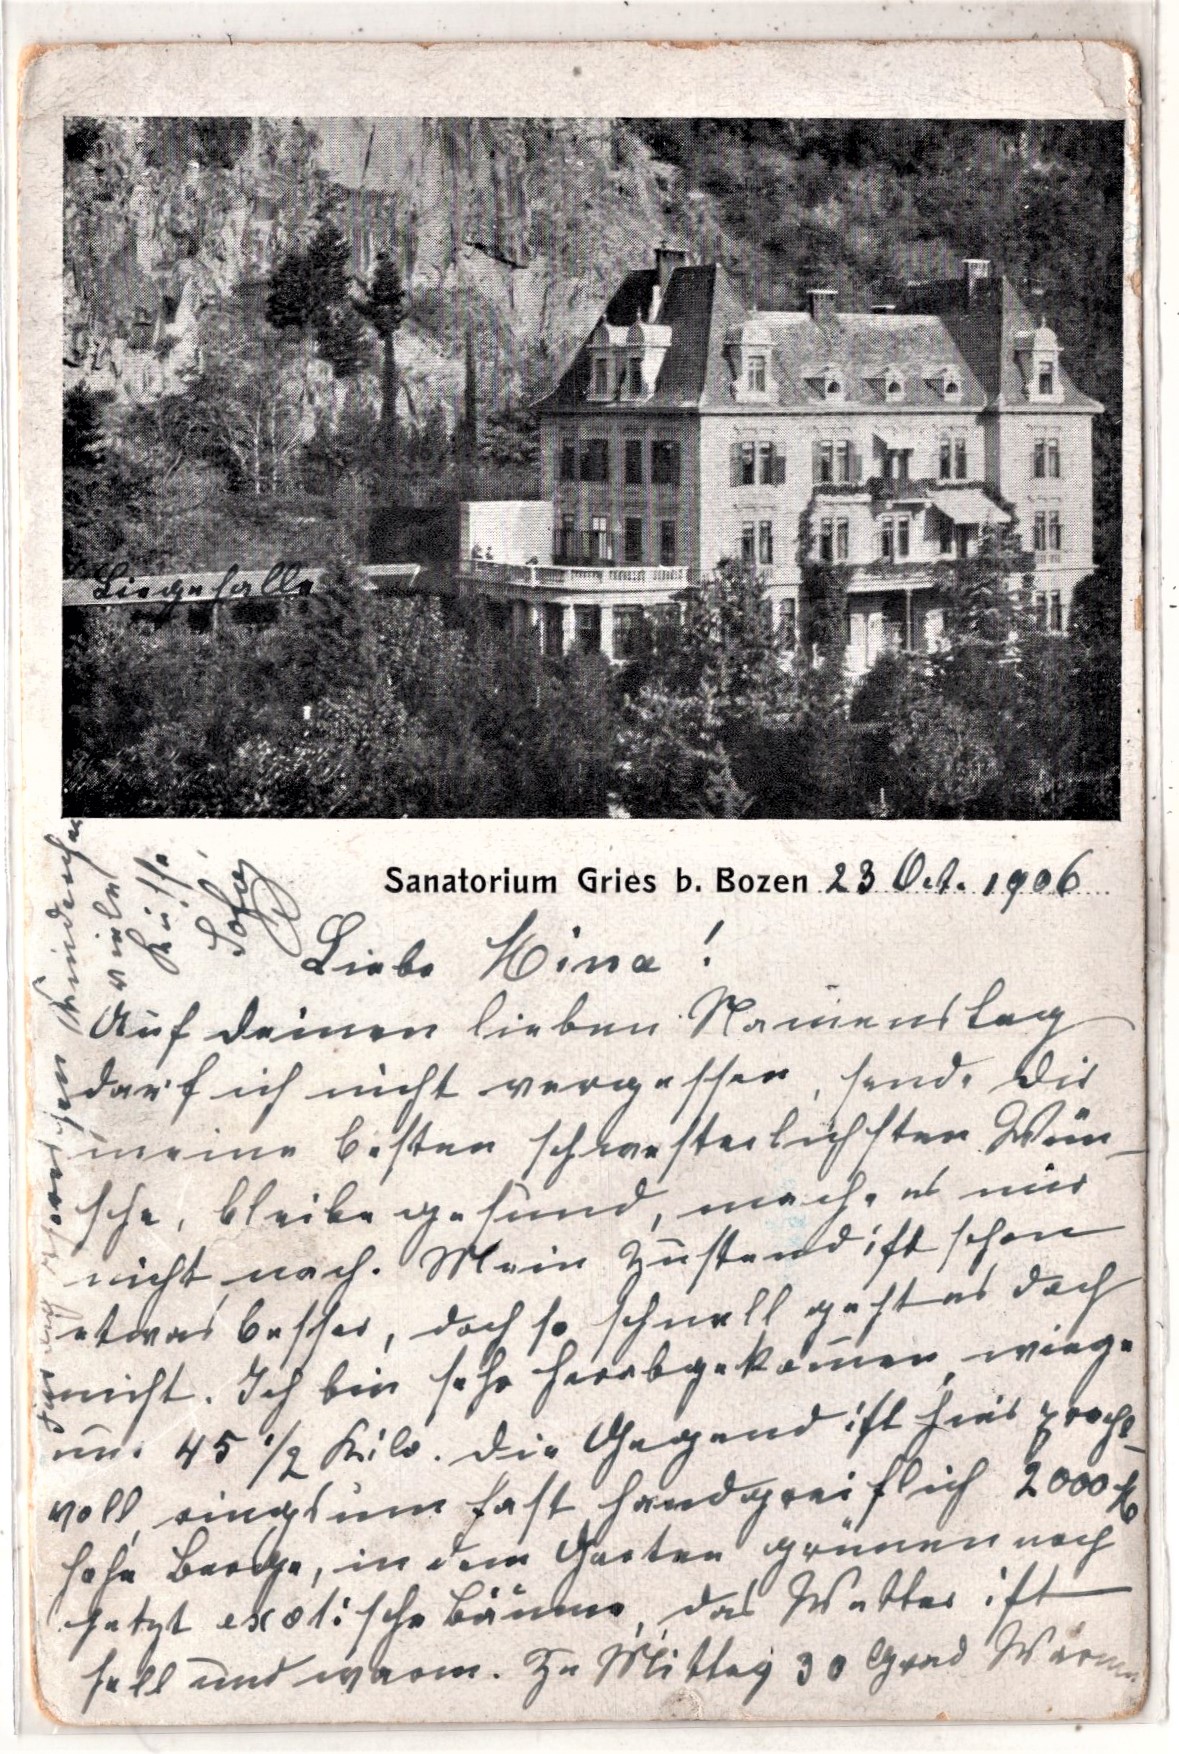 Liegehalle
Sanatorium Gries b. Bozen 23 Oct. 1906
Liebe Mina!
Auf deinen lieben Namenstag
darf ich nicht vergessen, sende Dir
meine besten schwesterlichsten Wün-
sche, bleibe gesund, mache es mir
nicht nach. Mein Zustand ist schon
etwas besser, doch so schnell geht es doch
nicht. Ich bin sehr herabgekommen, wiege
nur 45 1/2 Kilo. Die Gegend ist hier pracht-
voll, ringsum fast handgreiflich 2000 M
hohe Berge, in dem Garten grünen noch
jetzt exotische Bäume, das Wetter ist
hell und warm. Zu Mittag 30 Grad Wärme
Für dich
Kinderchen
viele
Küsse
Sofie